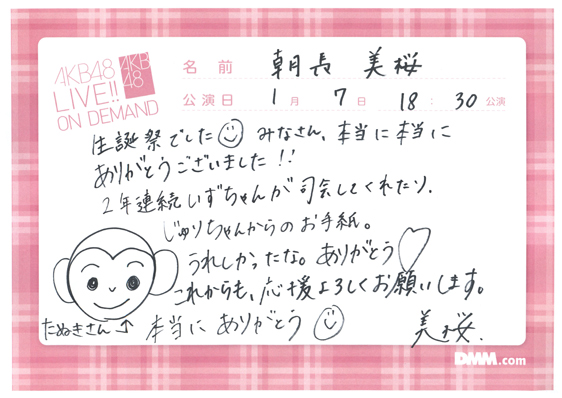 AKB48
LIVE!!
ON DEMAND
AKB
48
名前 朝長 美桜
公演日 1月 7日 18:30公演
生誕祭でした みなさん、本当に本当に
ありがとうございました!!
2年連続いずちゃんが司会してくれたり、
じゅりちゃんからのお手紙。
うれしかったな。ありがとう♡
これからも、応援よろしくお願いします。
たぬきさん↑ 本当にありがとう
美桜.
DMM.com